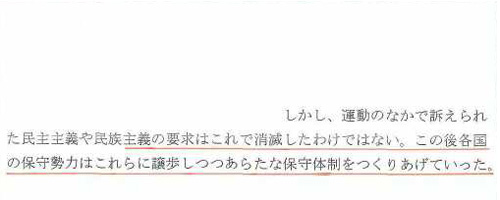 しかし、運動のなかで訴えられ
た民主主義や民族主義の要求はこれで消滅したわけではない。この後各国
の保守勢力はこれらに譲歩しつつあらたな保守体制をつくりあげていった。